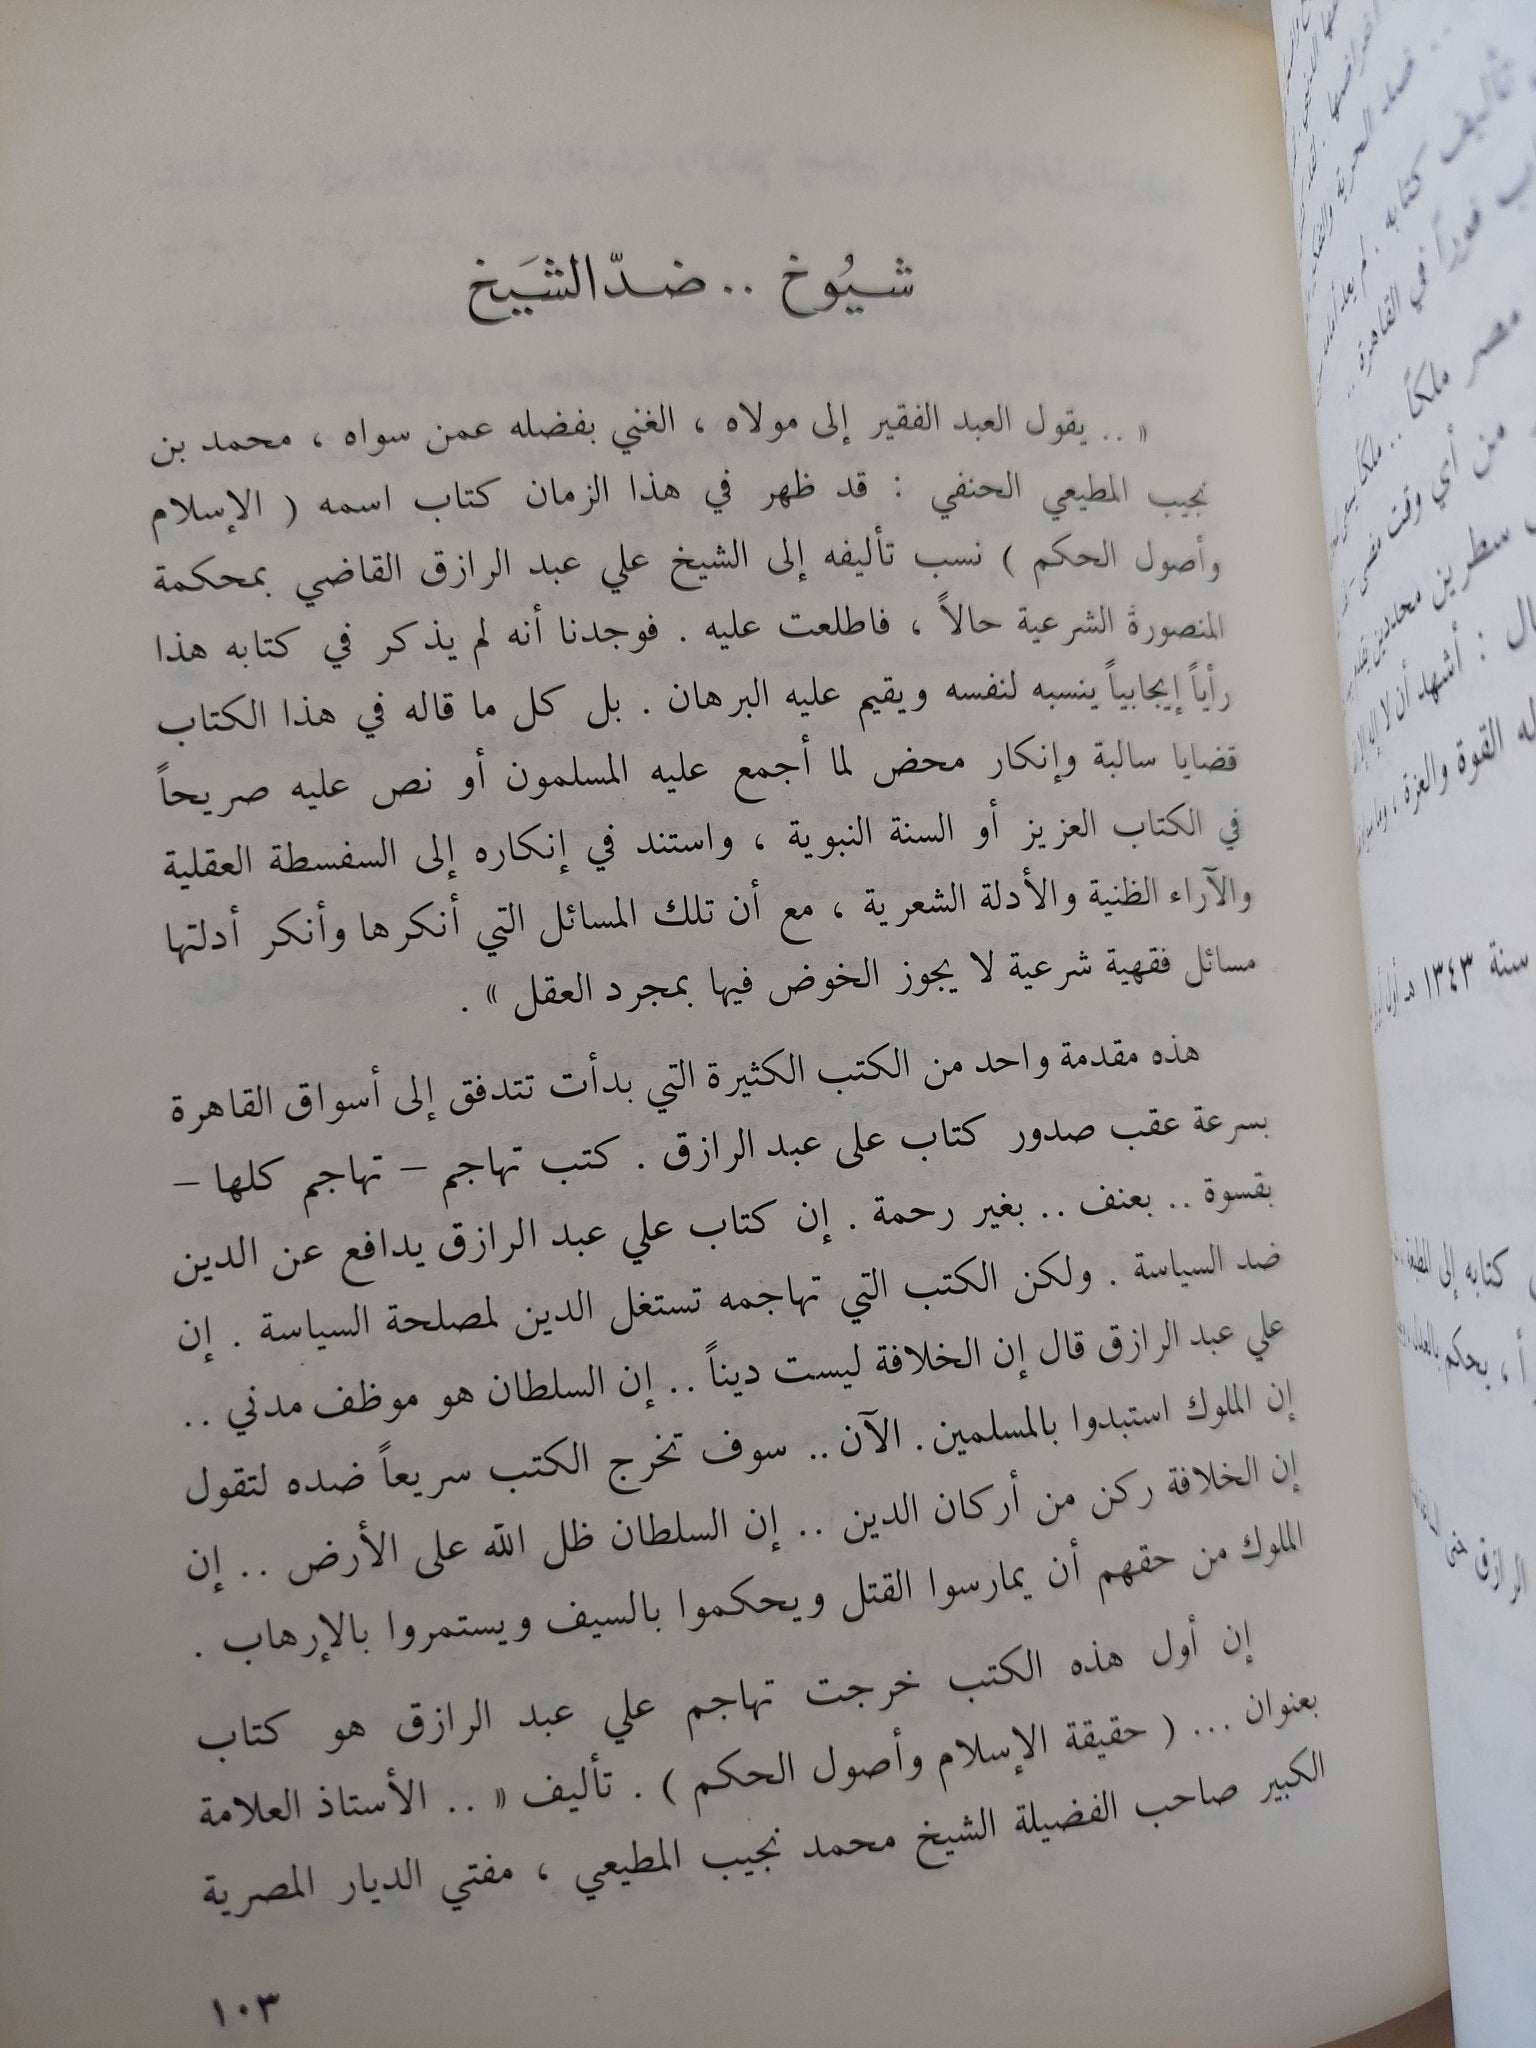 شيُوخ .. ضدّ الشيَخ
« .. يقول العبد الفقير إلى مولاه ، الغني بفضله عمن سواه ، محمد بن
نجيب المطيعي الحنفي : قد ظهر في هذا الزمان كتاب اسمه ( الإسلام
وأصول الحكم ) نسب تأليفه إلى الشيخ علي عبد الرازق القاضي بمحكمة
المنصورة الشرعية حالاً ، فاطلعت عليه . فوجدنا أنه لم يذكر في كتابه هذا
رأياً إيجابياً ينسبه لنفسه ويقيم عليه البرهان . بل كل ما قاله في هذا الكتاب
قضايا سالبة وإنكار محض لما أجمع عليه المسلمون أو نص عليه صريحاً
في الكتاب العزيز أو السنة النبوية ، واستند في إنكاره إلى السفسطة العقلية
والآراء الظنية والأدلة الشعرية ، مع أن تلك المسائل التي أنكرها وأنكر أدلتها
مسائل فقهية شرعية لا يجوز الخوض فيها بمجرد العقل » .
هذه مقدمة واحد من الكتب الكثيرة التي بدأت تتدفق إلى أسواق القاهرة
بسرعة عقب صدور كتاب على عبد الرازق . كتب تهاجم – تهاجم كلها –
بقسوة .. بعنف .. بغير رحمة . إن كتاب علي عبد الرازق يدافع عن الدين
ضد السياسة . ولكن الكتب التي تهاجمه تستغل الدين لمصلحة السياسة . إن
علي عبد الرازق قال إن الخلافة ليست ديناً .. إن السلطان هو موظف مدني ..
إن الملوك استبدوا بالمسلمين . الآن .. سوف تخرج الكتب سريعاً ضده لتقول
إن الخلافة ركن من أركان الدين .. إن السلطان ظل الله على الأرض .. إن
الملوك من حقهم أن يمارسوا القتل ويحكموا بالسيف ويستمروا بالإرهاب .
إن أول هذه الكتب خرجت تهاجم علي عبد الرازق هو كتاب
بعنوان ... ( حقيقة الإسلام وأصول الحكم ) . تأليف « .. الأستاذ العلامة
الكبير صاحب الفضيلة الشيخ محمد نجيب المطيعي ، مفتي الديار المصرية
١٠٣
.. ضد الحرية
تأليف كتابه . لم يعد أمامه
فوراً في القاهرة ..
مصر ملكاً .. ملكاً
من أي وقت مضى
سطرين محددين
: أشهد أن لا إله إلا
القوة والعزة ،
سنة ١٣٤٣ هـ
كتابه إلى المطبعة
، يحكم بالعدل
الرازق حتى